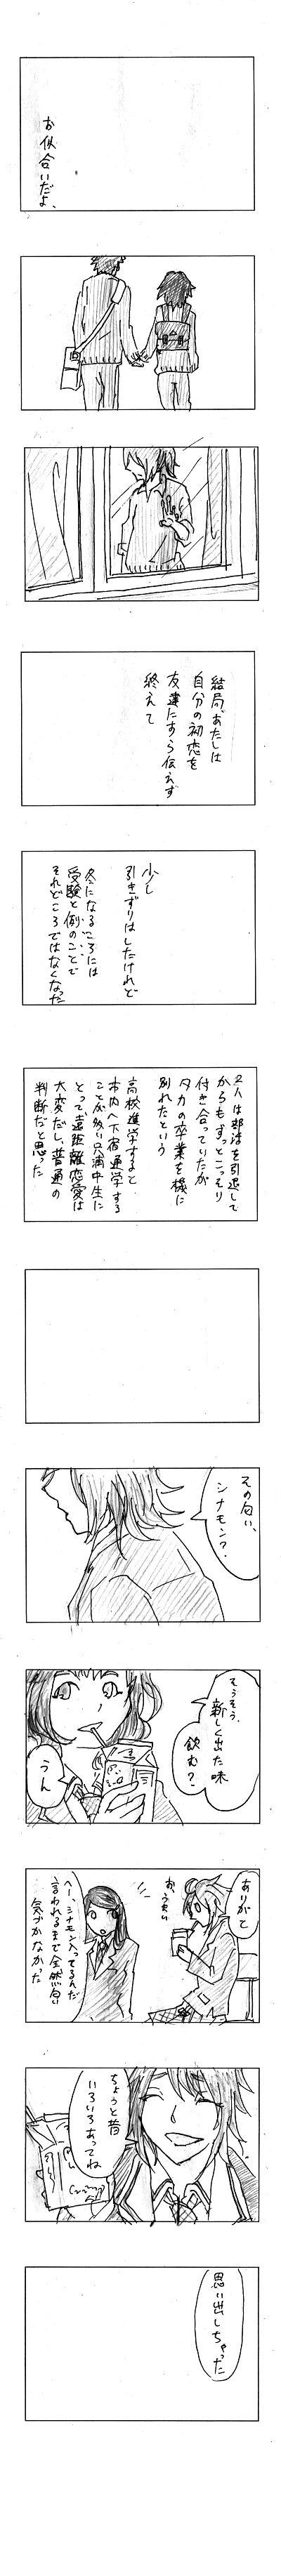 お似合いだよ、
結局、あたしは
自分の初恋を
友達にすら伝えず
終えて
少し
引きずりはしたけれど
冬になるころには
受験と例のことで
それどころではなくなった
2人は部活を引退して
からもずっとこっそり
付き合っていたが
タカの卒業を機に
別れたという
高校進学すると
市内へ下宿通学する
ことが多い只浦中生に
とって、遠距離恋愛は
大変だし、普通の
判断だと思った
その匂い、
シナモン?
そうそう、
新しく出た味
飲む?
うん
ありがと
お、うまい
へー、シナモン入ってるんだ
言われるまで全然匂い
気づかなかった
ちょっと昔
いろいろあってね
思い出しちゃった